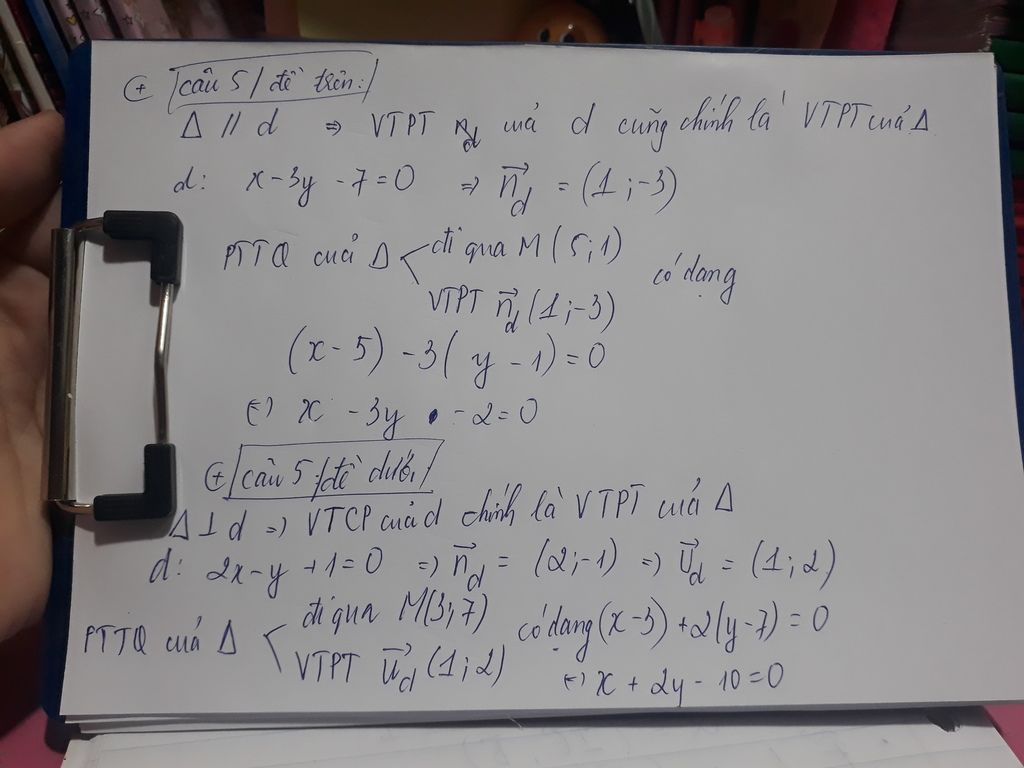 + Câu 5/ đề trên:
Δ // d ⇒ VTPT n_d của d cũng chính là VTPT của Δ
d: x - 3y - 7 = 0 ⇒ n⃗_d = (1; -3)
PTTQ của Δ < đi qua M (5; 1) có dạng
VTPT n⃗_d (1; -3)
(x - 5) - 3(y - 1) = 0
(=) x - 3y - 2 = 0
+ Câu 5/ đề dưới
Δ ⊥ d => VTCP của d chính là VTPT của Δ
d: 2x - y + 1 = 0 => n⃗_d = (2; -1) => u⃗_d = (1; 2)
PTTQ của Δ < đi qua M(3; 7) có dạng (x-3) + 2(y-7) = 0
VTPT u⃗_d (1; 2) (=) x + 2y - 10 = 0